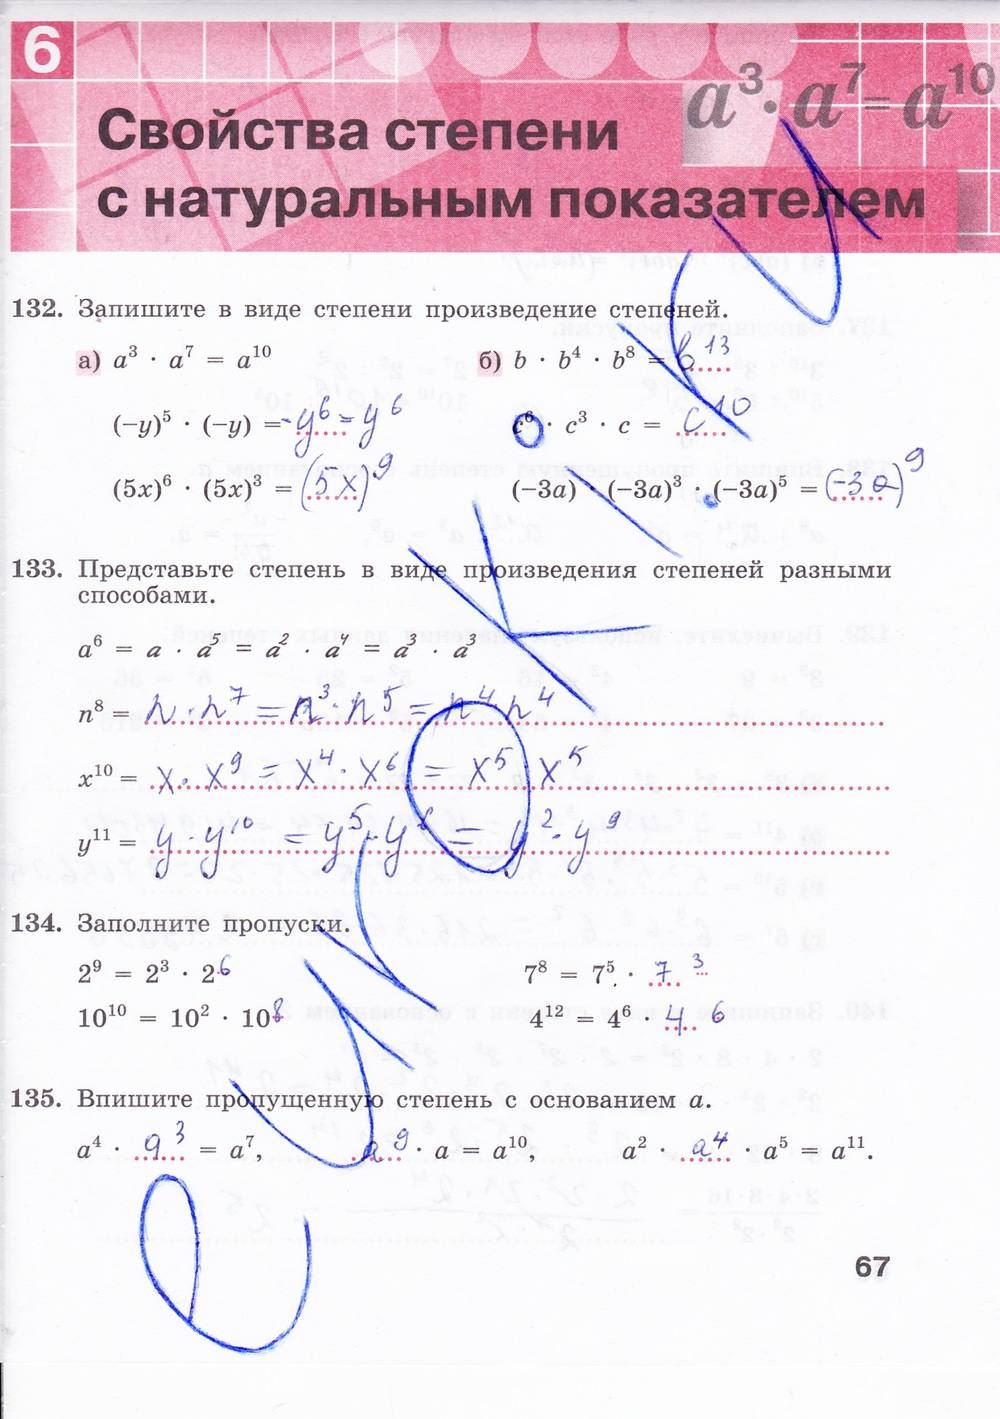 6
a³ · a⁷ = a¹⁰
Свойства степени
с натуральным показателем
132. Запишите в виде степени произведение степеней.
а) a³ · a⁷ = a¹⁰ б) b · b⁴ · b⁸ = b¹³
(−y)⁵ · (−y) = -y⁶ = y⁶ c⁶ · c³ · c = c¹⁰
(5x)⁶ · (5x)³ = (5x)⁹ (−3a) · (−3a)³ · (−3a)⁵ = (-3a)⁹
133. Представьте степень в виде произведения степеней разными
способами.
a⁶ = a · a⁵ = a² · a⁴ = a³ · a³
n⁸ = n · n⁷ = n³ · n⁵ = n⁴ n⁴
x¹⁰ = x · x⁹ = x⁴ · x⁶ = x⁵ x⁵
y¹¹ = y · y¹⁰ = y⁵ · y⁶ = y² · y⁹
134. Заполните пропуски.
2⁹ = 2³ · 2⁶ 7⁸ = 7⁵ · 7³
10¹⁰ = 10² · 10⁸ 4¹² = 4⁶ · 4⁶
135. Впишите пропущенную степень с основанием a.
a⁴ · a³ = a⁷, a⁹ · a = a¹⁰, a² · a⁴ · a⁵ = a¹¹.
67